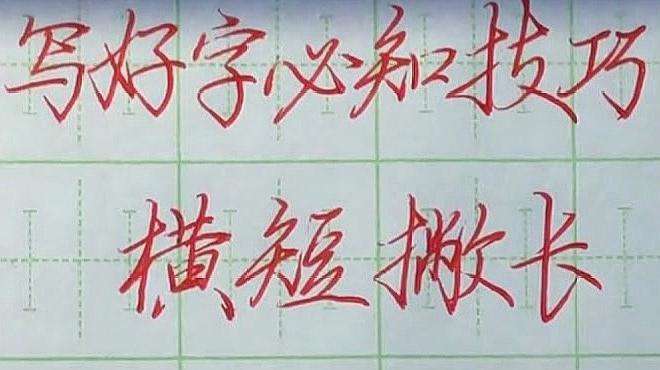 写好字必知技巧
横短撇长